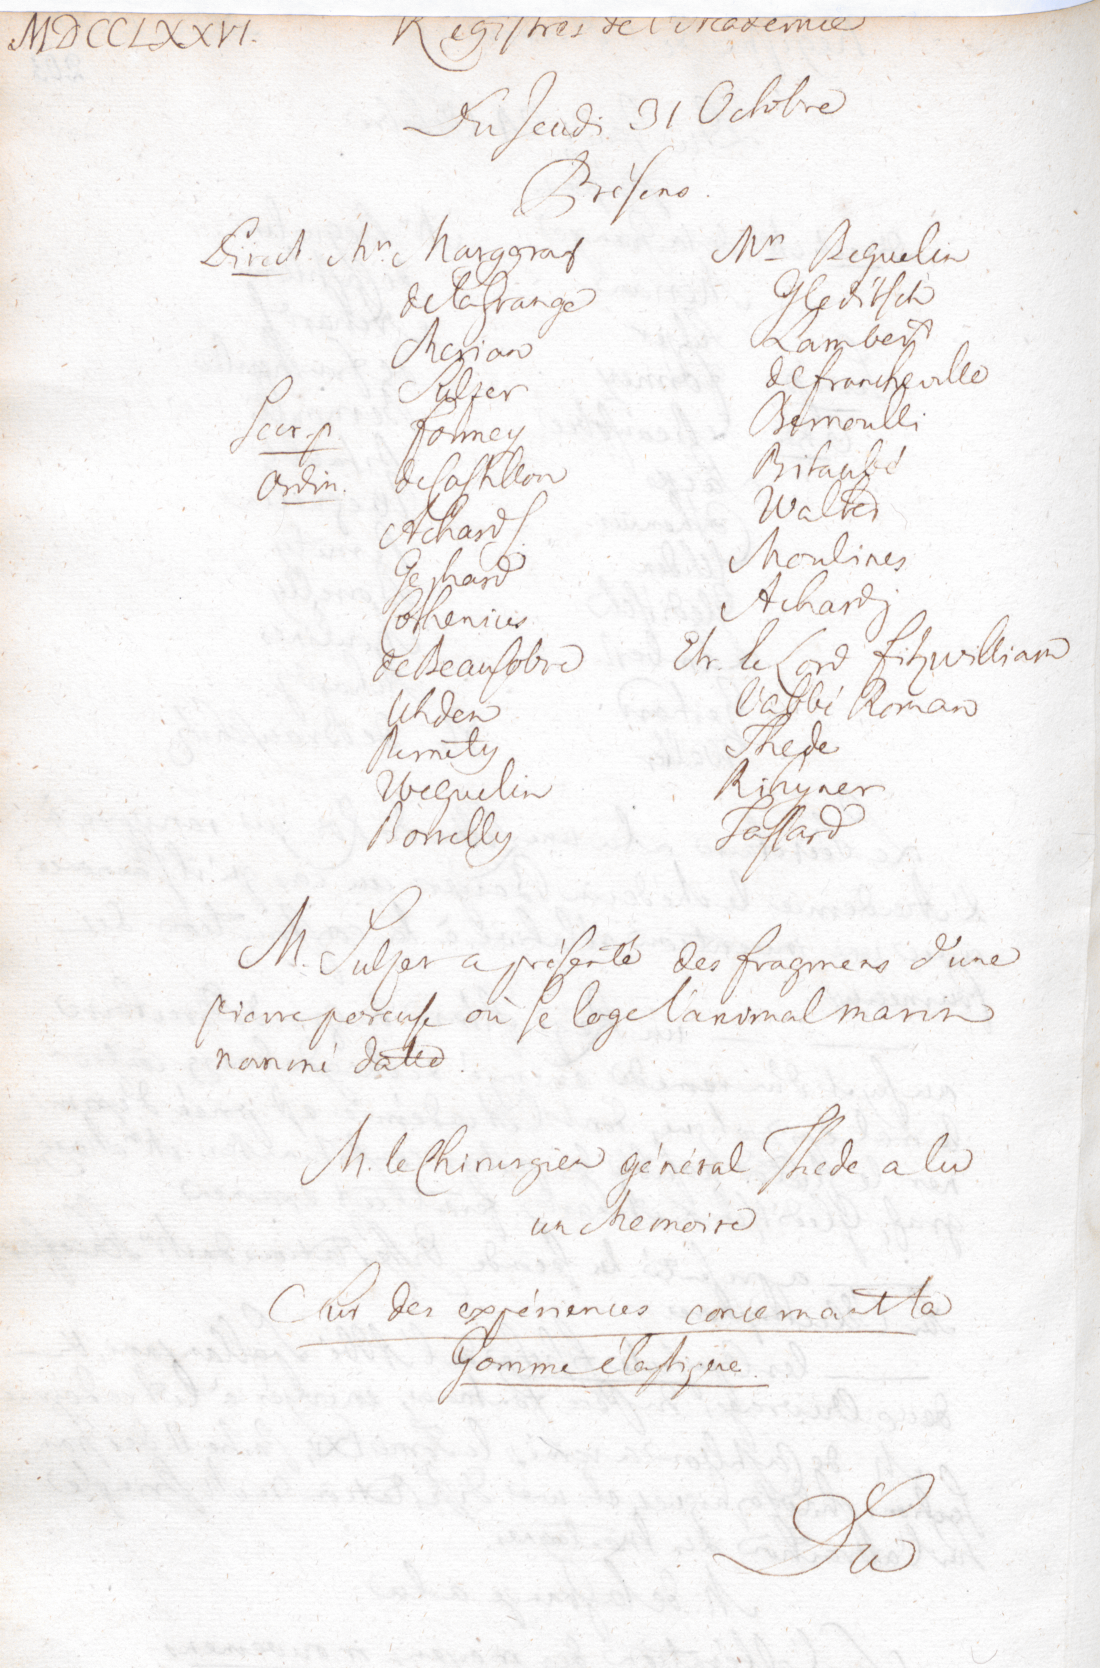 MDCCLXXVI. Registres de l'Academie
Du Jeudi 31 Octobre
Présens.
Direct. Mrs. Marggraf
de la Grange
Merian
Sulzer
Secr. p. Formey
Ordin. de Castillon
Achard S.
Gerhard
Cothenius
de Beausobre
Uhden
Pernety
Weguelin
Borrelly
Mrs Beguelin
Gleditsch
Lambert
de Francheville
Bernoulli
Bitaubé
Walter
Moulines
Achard j
Etr. le Lord Fitzwilliam
l'abbé Roman
Thede
Rihyner
Tassard
M. Sulzer a présenté des fragmens d'une
pierre poreuse où se loge l'animal marin
nommé datte.
M. le Chirurgien général Thede a lu
un Memoire
Sur des expériences concernant la
Gomme élastique.
Du